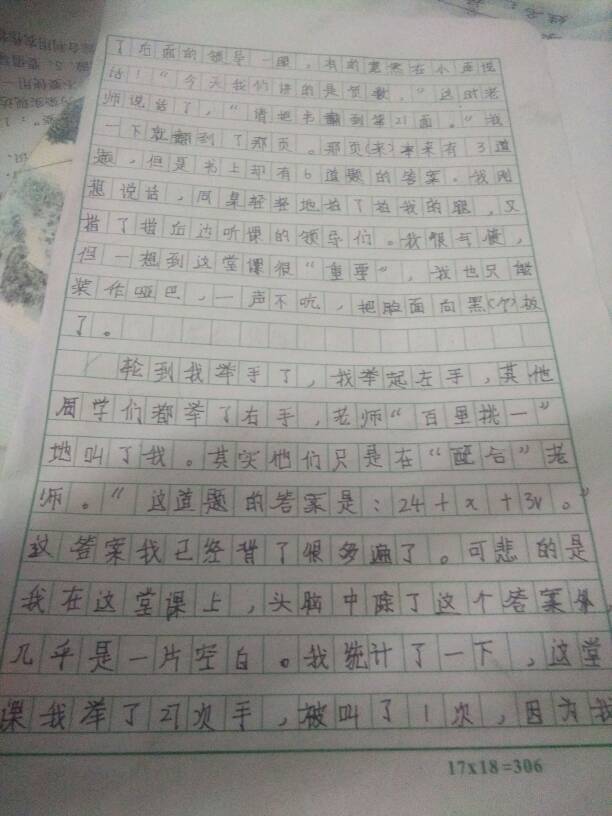 了后面的领导一眼，有的竟然在小声说
话！“今天我们讲的是负数，”这时老
师说话了，“请把书翻到第21面。”我
一下就翻到了那页。那页(来)本来有3道
题，但是书上却有6道题的答案。我刚
想说话，同桌轻轻地拍了拍我的腿，又
指了指后边听课的领导们。我很气愤，
但一想到这堂课很“重要”，我也只能
装作哑巴，一声不吭，把脸面向黑板
了。
轮到我举手了，我举起左手，其他
同学们都举了右手，老师“百里挑一”
地叫了我。其实他们只是在“配合”老
师。“这道题的答案是：24+x+3v。”
这答案我已经背了很多遍了。可悲的是
我在这堂课上，头脑中除了这个答案外，
几乎是一片空白。我统计了一下，这堂
课我举了27次手，被叫了1次，因为我
17x18=306